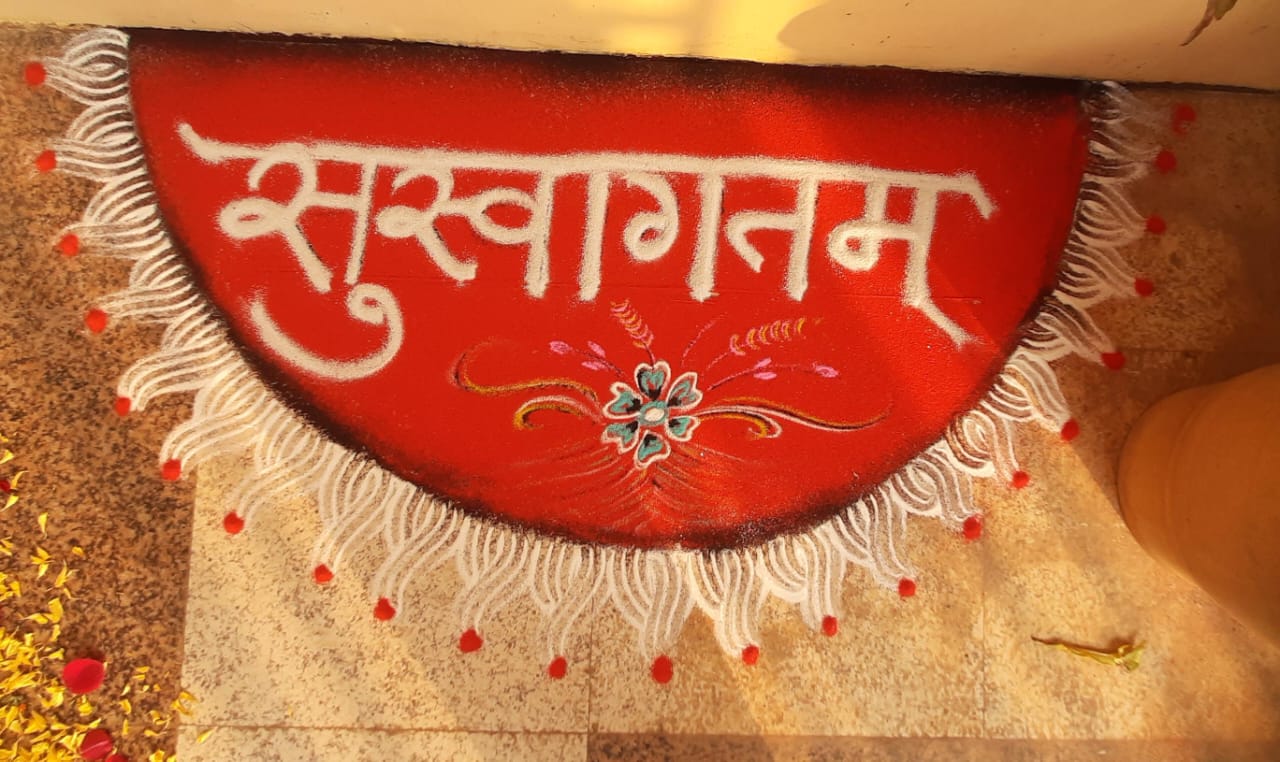 सुस्वागतम्